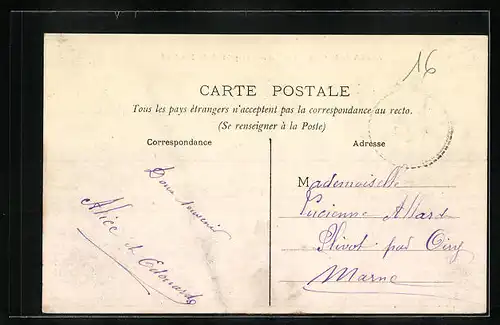 16
CARTE POSTALE
Tous les pays étrangers n'acceptent pas la correspondance au recto.
(Se renseigner à la Poste)
Correspondance
Adresse
Bons Souvenirs
Alice et Edouard
Mademoiselle
Lucienne Allard
Plivot par Oiry
Marne